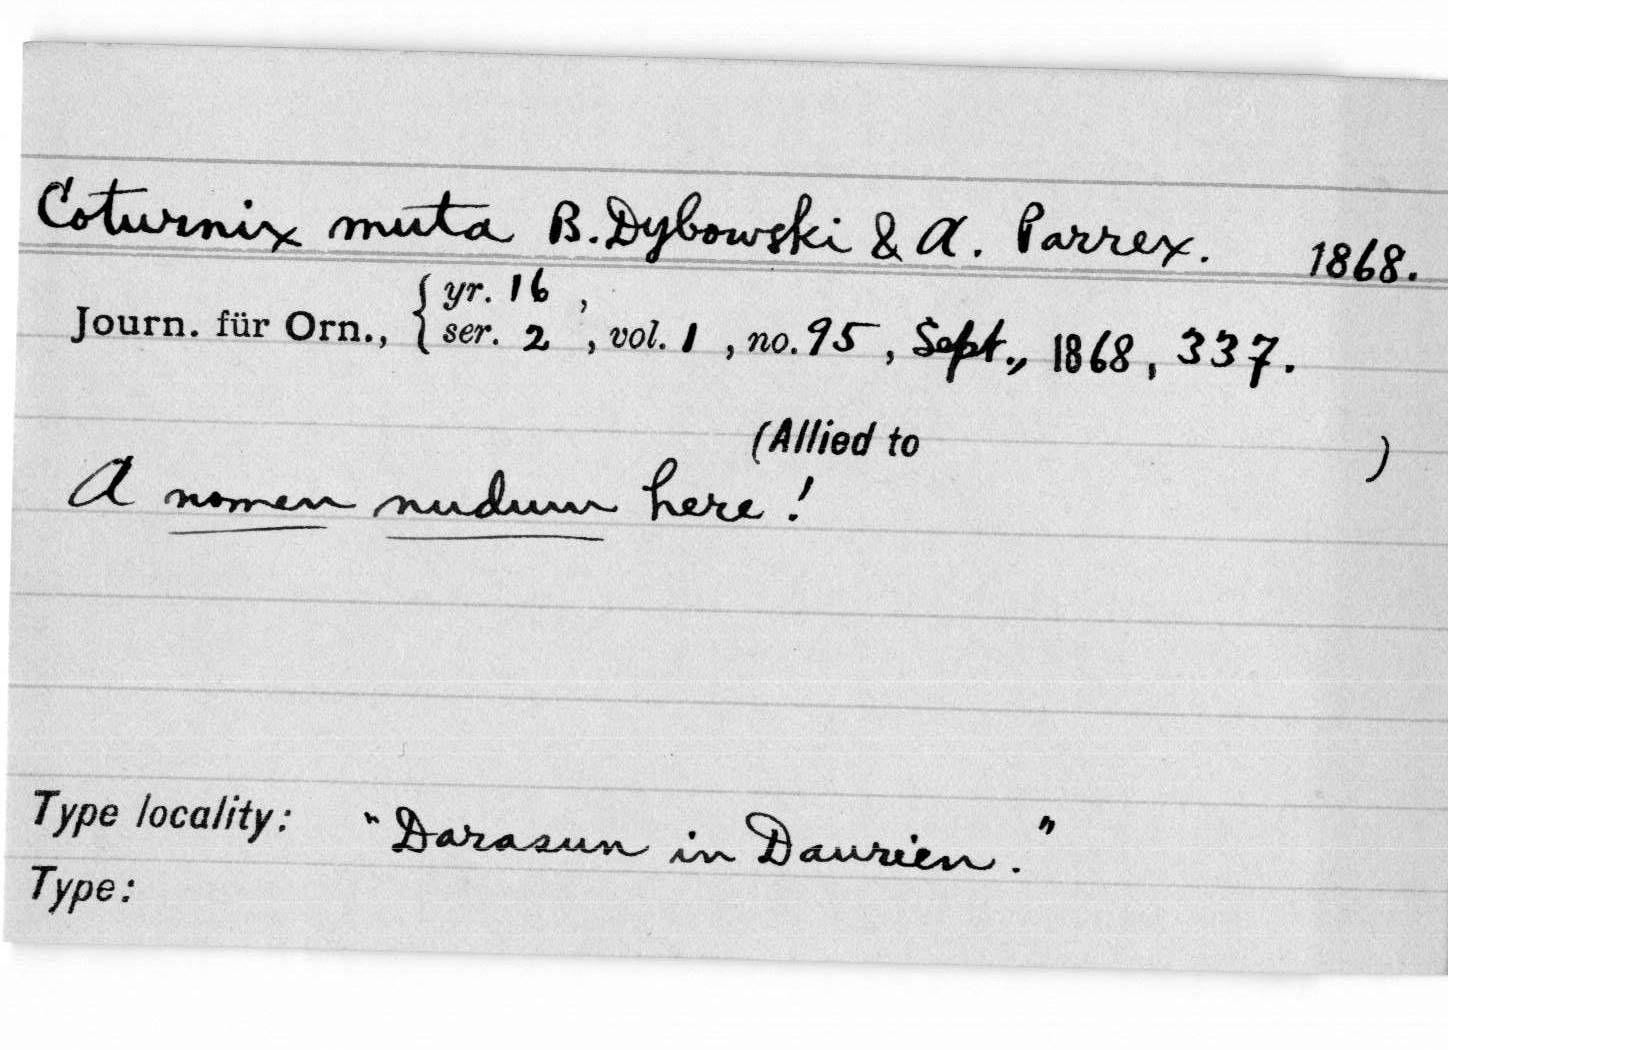 Coturnix muta B. Dybowski & A. Parrex. 1868.
Journ. für Orn., { yr. 16 ,
ser. 2 , vol. 1 , no. 95 , Sept., 1868, 337.
(Allied to )
A nomen nudum here!
Type locality: "Darasun in Daurien."
Type: